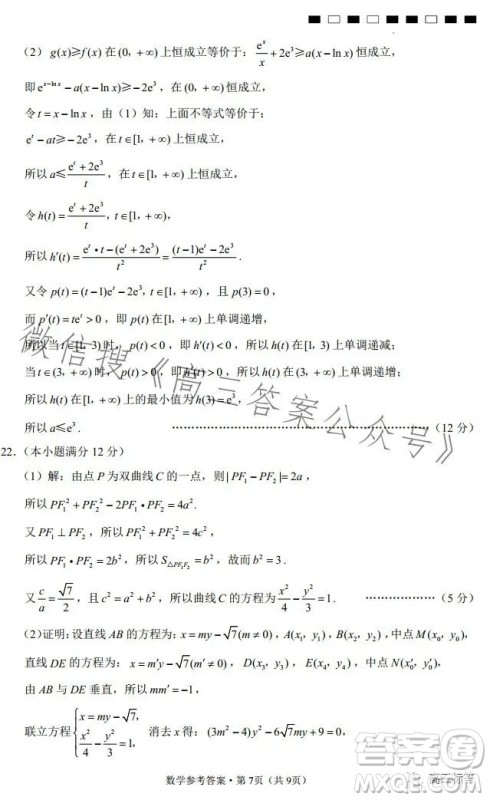 （2）g(x)≥f(x) 在 (0，+∞) 上恒成立等价于：e^x/x + 2e^3 ≥ a(x − ln x) 恒成立，
即 e^(x−ln x) − a(x − ln x) ≥ −2e^3，在 (0，+∞) 恒成立，
令 t = x − ln x，由（1）知：上面不等式等价于：
e^t − at ≥ −2e^3，在 t∈[1，+∞) 恒成立，
所以 a ≤ (e^t + 2e^3)/t，在 t∈[1，+∞) 上恒成立，
令 h(t) = (e^t + 2e^3)/t，t∈[1，+∞)，
所以 h′(t) = (e^t • t − (e^t + 2e^3))/t^2 = ((t−1)e^t − 2e^3)/t^2 .
又令 p(t) = (t−1)e^t − 2e^3，t∈[1，+∞)，且 p(3) = 0，
而 p′(t) = te^t > 0，即 p(t) 在 t∈[1，+∞) 上单调递增，
所以当 t∈[1，3) 时，p(t) < 0，即 h′(t) < 0，所以 h(t) 在 [1，3) 上单调递减；
当 t∈(3，+∞) 时，p(t) > 0，即 h′(t) > 0，所以 h(t) 在 (3，+∞) 上单调递增；
所以 h(t) 在 t∈[1，+∞) 上的最小值为 h(3) = e^3.
所以 a ≤ e^3. ……………………………………（12 分）
22.（本小题满分 12 分）
（1）解：由点 P 为双曲线 C 的一点，则 | PF₁ − PF₂ | = 2a，
所以 PF₁² + PF₂² − 2PF₁ • PF₂ = 4a².
又 PF₁ ⊥ PF₂，所以 PF₁² + PF₂² = 4c²，
所以 PF₁ • PF₂ = 2b²，所以 S△PF₁F₂ = b²，故而 b² = 3 .
又 c/a = √7/2，且 c² = a² + b²，所以曲线 C 的方程为：x²/4 − y²/3 = 1. ………………（5 分）
（2）证明：设直线 AB 的方程为：x = my − √7(m ≠ 0)，A(x₁，y₁)，B(x₂，y₂)，中点 M(x₀，y₀)，
直线 DE 的方程为：x = m′y − √7(m′ ≠ 0)，D(x₃，y₃)，E(x₄，y₄)，中点 N(x₀′，y₀′)，
由 AB 与 DE 垂直，所以 mm′ = −1，
联立方程{x = my − √7, x²/4 − y²/3 = 1, 消去 x 得：(3m² − 4)y² − 6√7my + 9 = 0，
数学参考答案 · 第 7页（共 9页）
微信搜《高三答案公众号》